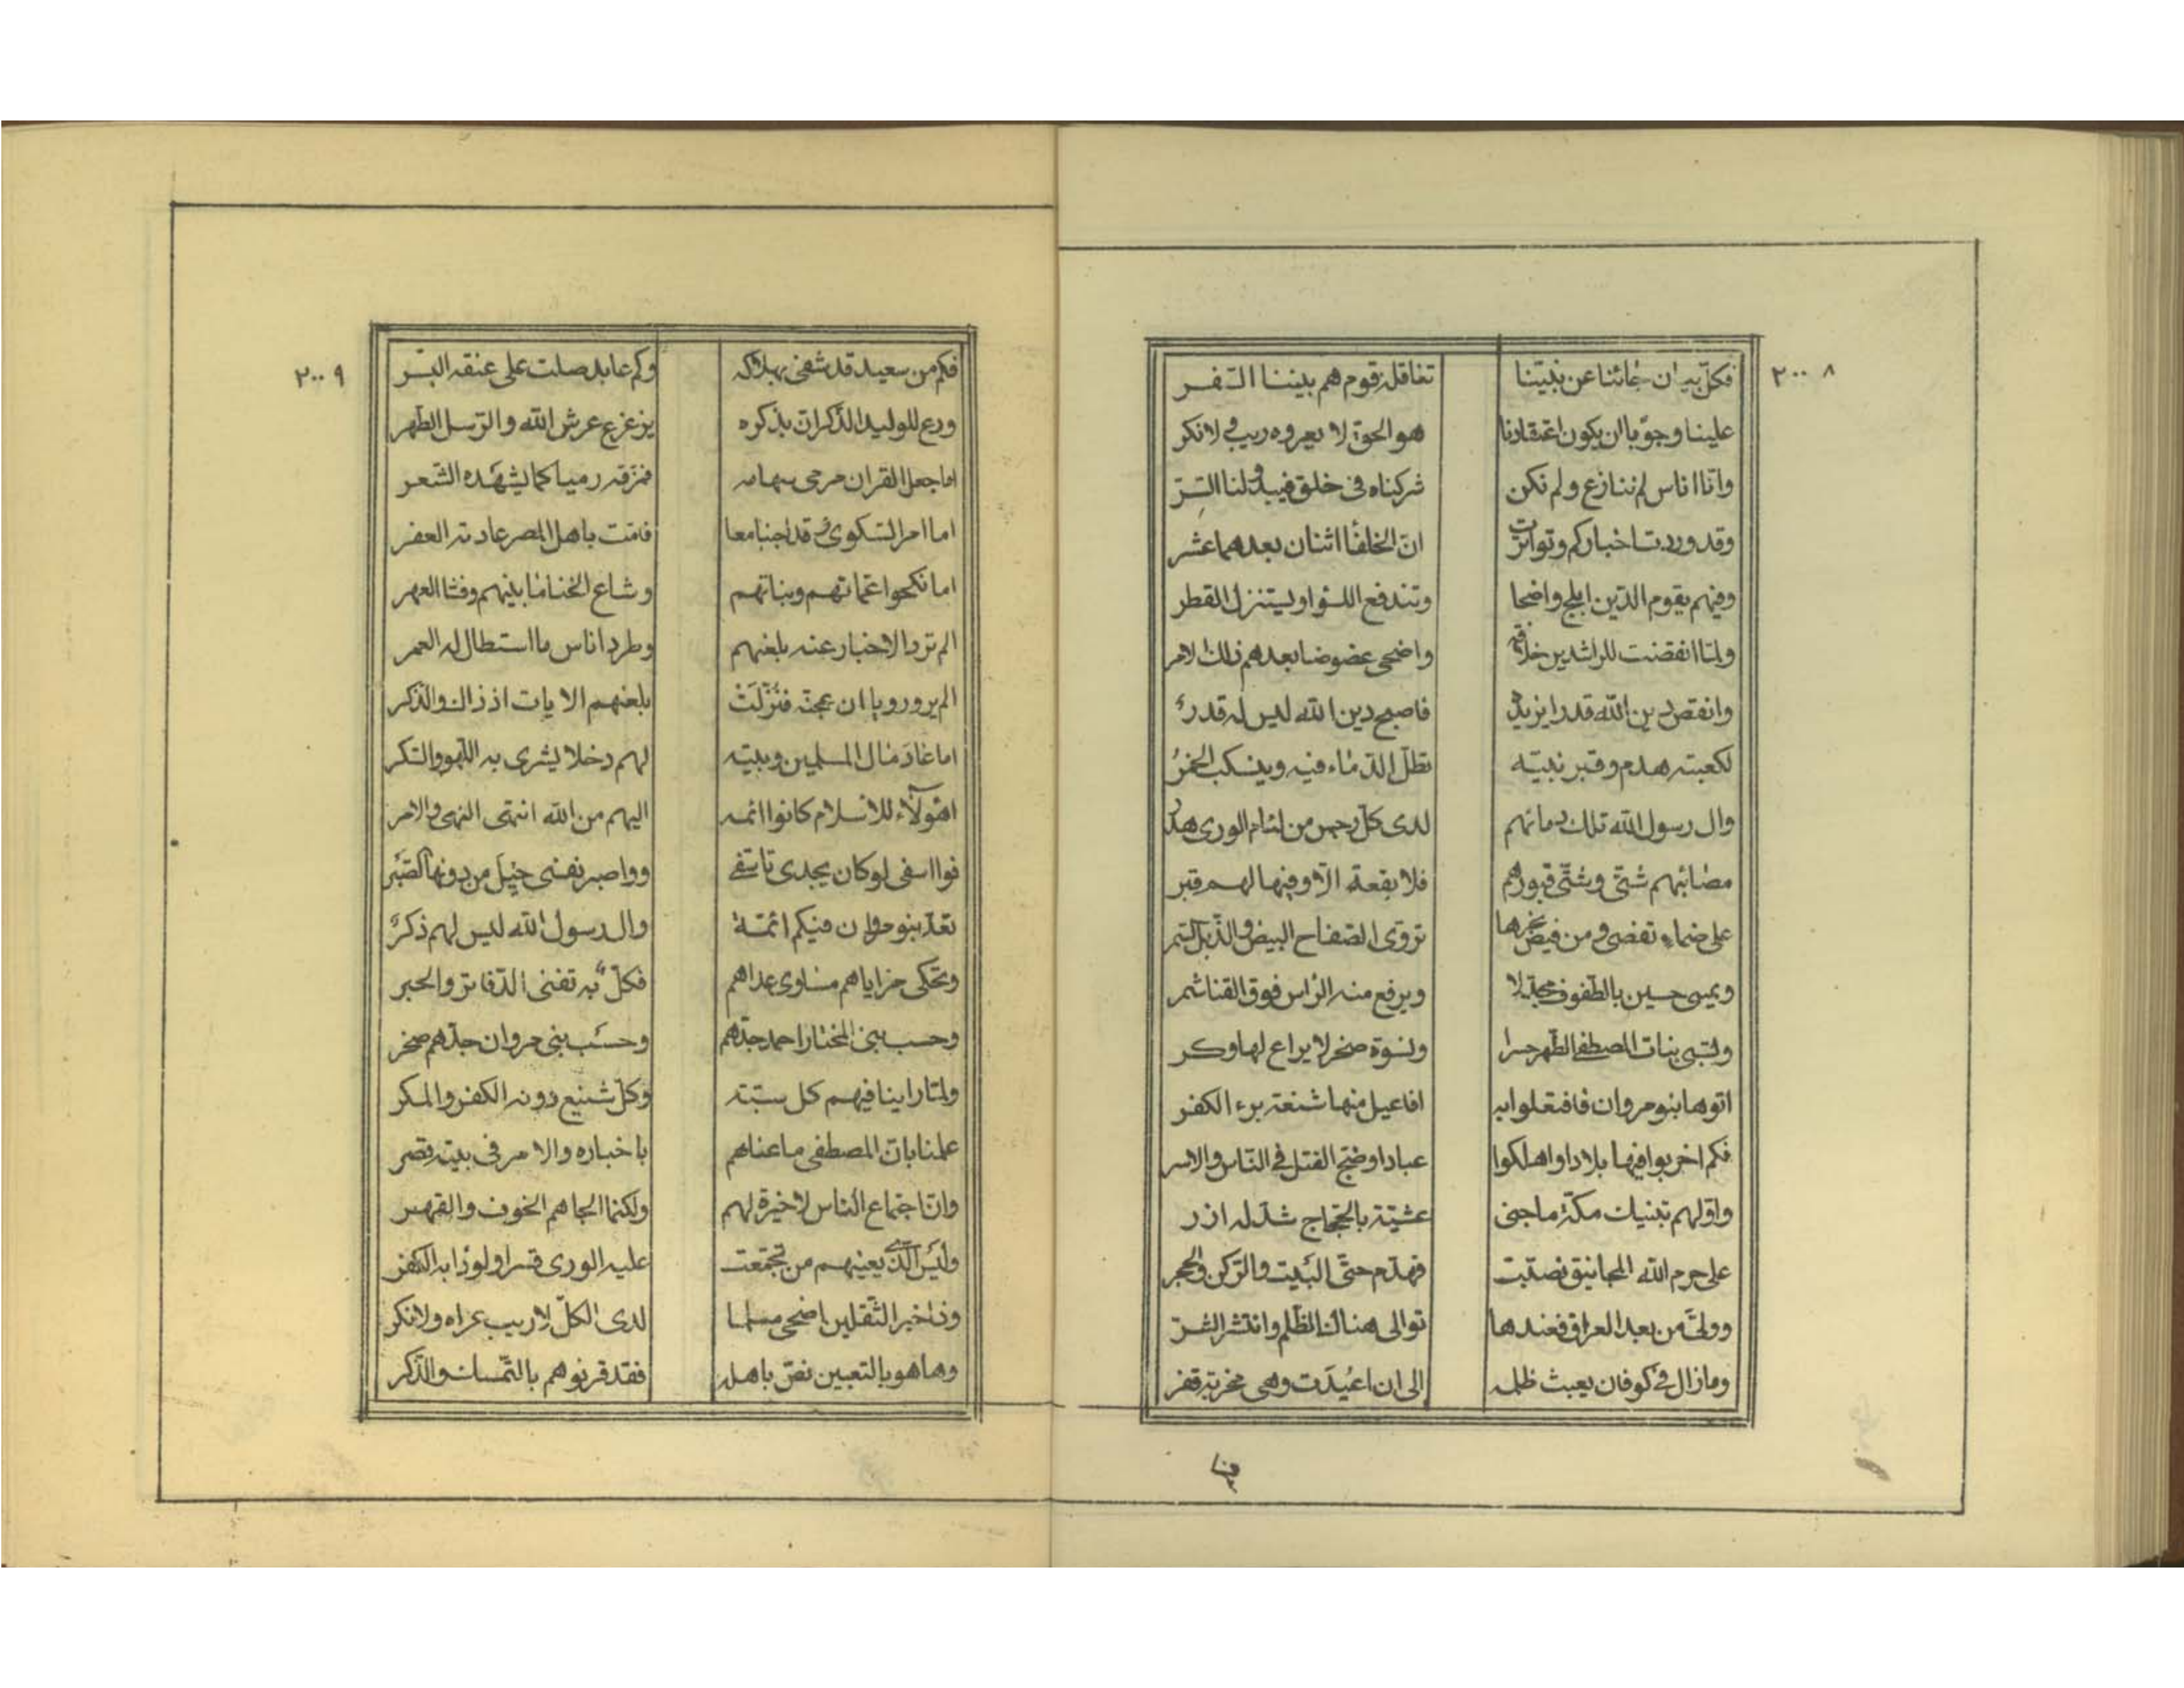 ٢٠٠٨
فكل بيان جائنا عن نبيّنا تغافله قوم هم بيننا النفر
علينا وجوبا ان يكون اعتقادنا هو الحق لا يعروه ريب ولا نكر
وانا اناس لم ننازع ولم نكن شركناه فى خلق فيبدو لنا السّرّ
وقد وردت اخباركم وتواترت انّ الخلفا اثنان بعدهما عشر
وفيهم يقوم الدّين ابلج واضحا وتندفع اللؤاو ليستنزل القطر
ولمّا انقضت للراشدين خلافة واضحى عضوضا بعدهم ذلك الامر
وانقص دين الله قدرا يزيد فاصبح دين الله ليس له قدر
لكعبته هدم وقبر نبيّه تطلّ الدّماء فيه وينسكب الخمرُ
وال رسول الله تلك دمائهم لدى كلّ رجس من لئام الورى هدر
مصائبهم شتّى وشتّى قبورهم فلا بقعة الّا وفيها لهم قبر
على ضماء تقضى ومن فيض نحرها تروّى الصّفاح البيض والذّبّل السّمر
ويمسى حسين بالطّفوف مجدّلا ويرفع منه الرّاس فوق القنا شمر
وتسبى بنات المصطفى الطّهر حسرا ونسوة صخر لا يراع لها وكر
اتوها بنو مروان فافتعلوا به افاعيل منها شنعة برء الكفر
فكم اخربوا فيها بلادا واهلكوا عبادا وضجّ القتل فى النّاس والاسر
واوّلهم بنيات مكّة ما جنى عشيّة بالحجّاج شدّ له ازر
على حرم الله المجانيق نصّبت فهدّم حتّى البيت والرّكن والحجر
وولىّ من بعد العراق فعندها توالى هناك الظّلم وانتشر الشّرّ
وما زال فى كوفان يعبث ظلمه الى ان اعيدت وهى مخربة قفر
٢٠٠٩
فكم من سعيد قد شفى بهلاكه وكم عابد صلت على عنقه البتر
ودع للوليد الذّكر ان بذكره يزعزع عرش الله والرّسل الطّهر
اما جعل القران مرمى سهامه فمزّقه رميا كما يشهَده الشّعر
اما امر السّكرى وقد اجنبا معا فامت باهل المصر عادته العفر
اما نكحوا عمّاتهم وبناتهم وشاع الخنا ما بينهم وفشا العهر
الم ترد الاخبار عنه بلعنهم وطرد اناس ما استطال له العمر
الم ير ورويا ان عجت فنزلت بلعنهم الايات اذ ذاك والذّكر
اما عاد مال المسلمين وبيته لهم دخلا يشرى به اللّهو والسّكر
اهؤلآء للاسلام كانوا ائمه اليهم من الله انتهى النهى والامر
فوا اسفى لو كان يجدى تاسّفى وواصبر نفسى حيل من دونها الصّبر
تعدّ بنو مروان فيكم ائمّة وال رسول الله ليس لهم ذكر
وتحكى مزاياهم مساوى عداهم فكلّ به تفنى الدّفاتر والحبر
وحسب بنى المختار احمد جدّهم وحسب بنى مروان جدّهم صخر
ولمّا راينا فيهم كل سبّة وكلّ شنيع دونه الكفر والمكر
علمنا بانّ المصطفى ما عناهم باخباره والامر فى بيته قصر
وانّ اجتماع النّاس لا خيرة لهم ولكنّما الجاهم الخوف والقهر
وليَس الّذى يعنيهم من تجّمعت عليه الورى قسرا ولو دا به الكفر
وذا خبر الثّقلين اضحى مسلما لدى الكلّ لا ريب عراه ولا نكر
وها هو بالتعيين نصّ باهله فقد قرنوهم بالتّمسّك والذّكر